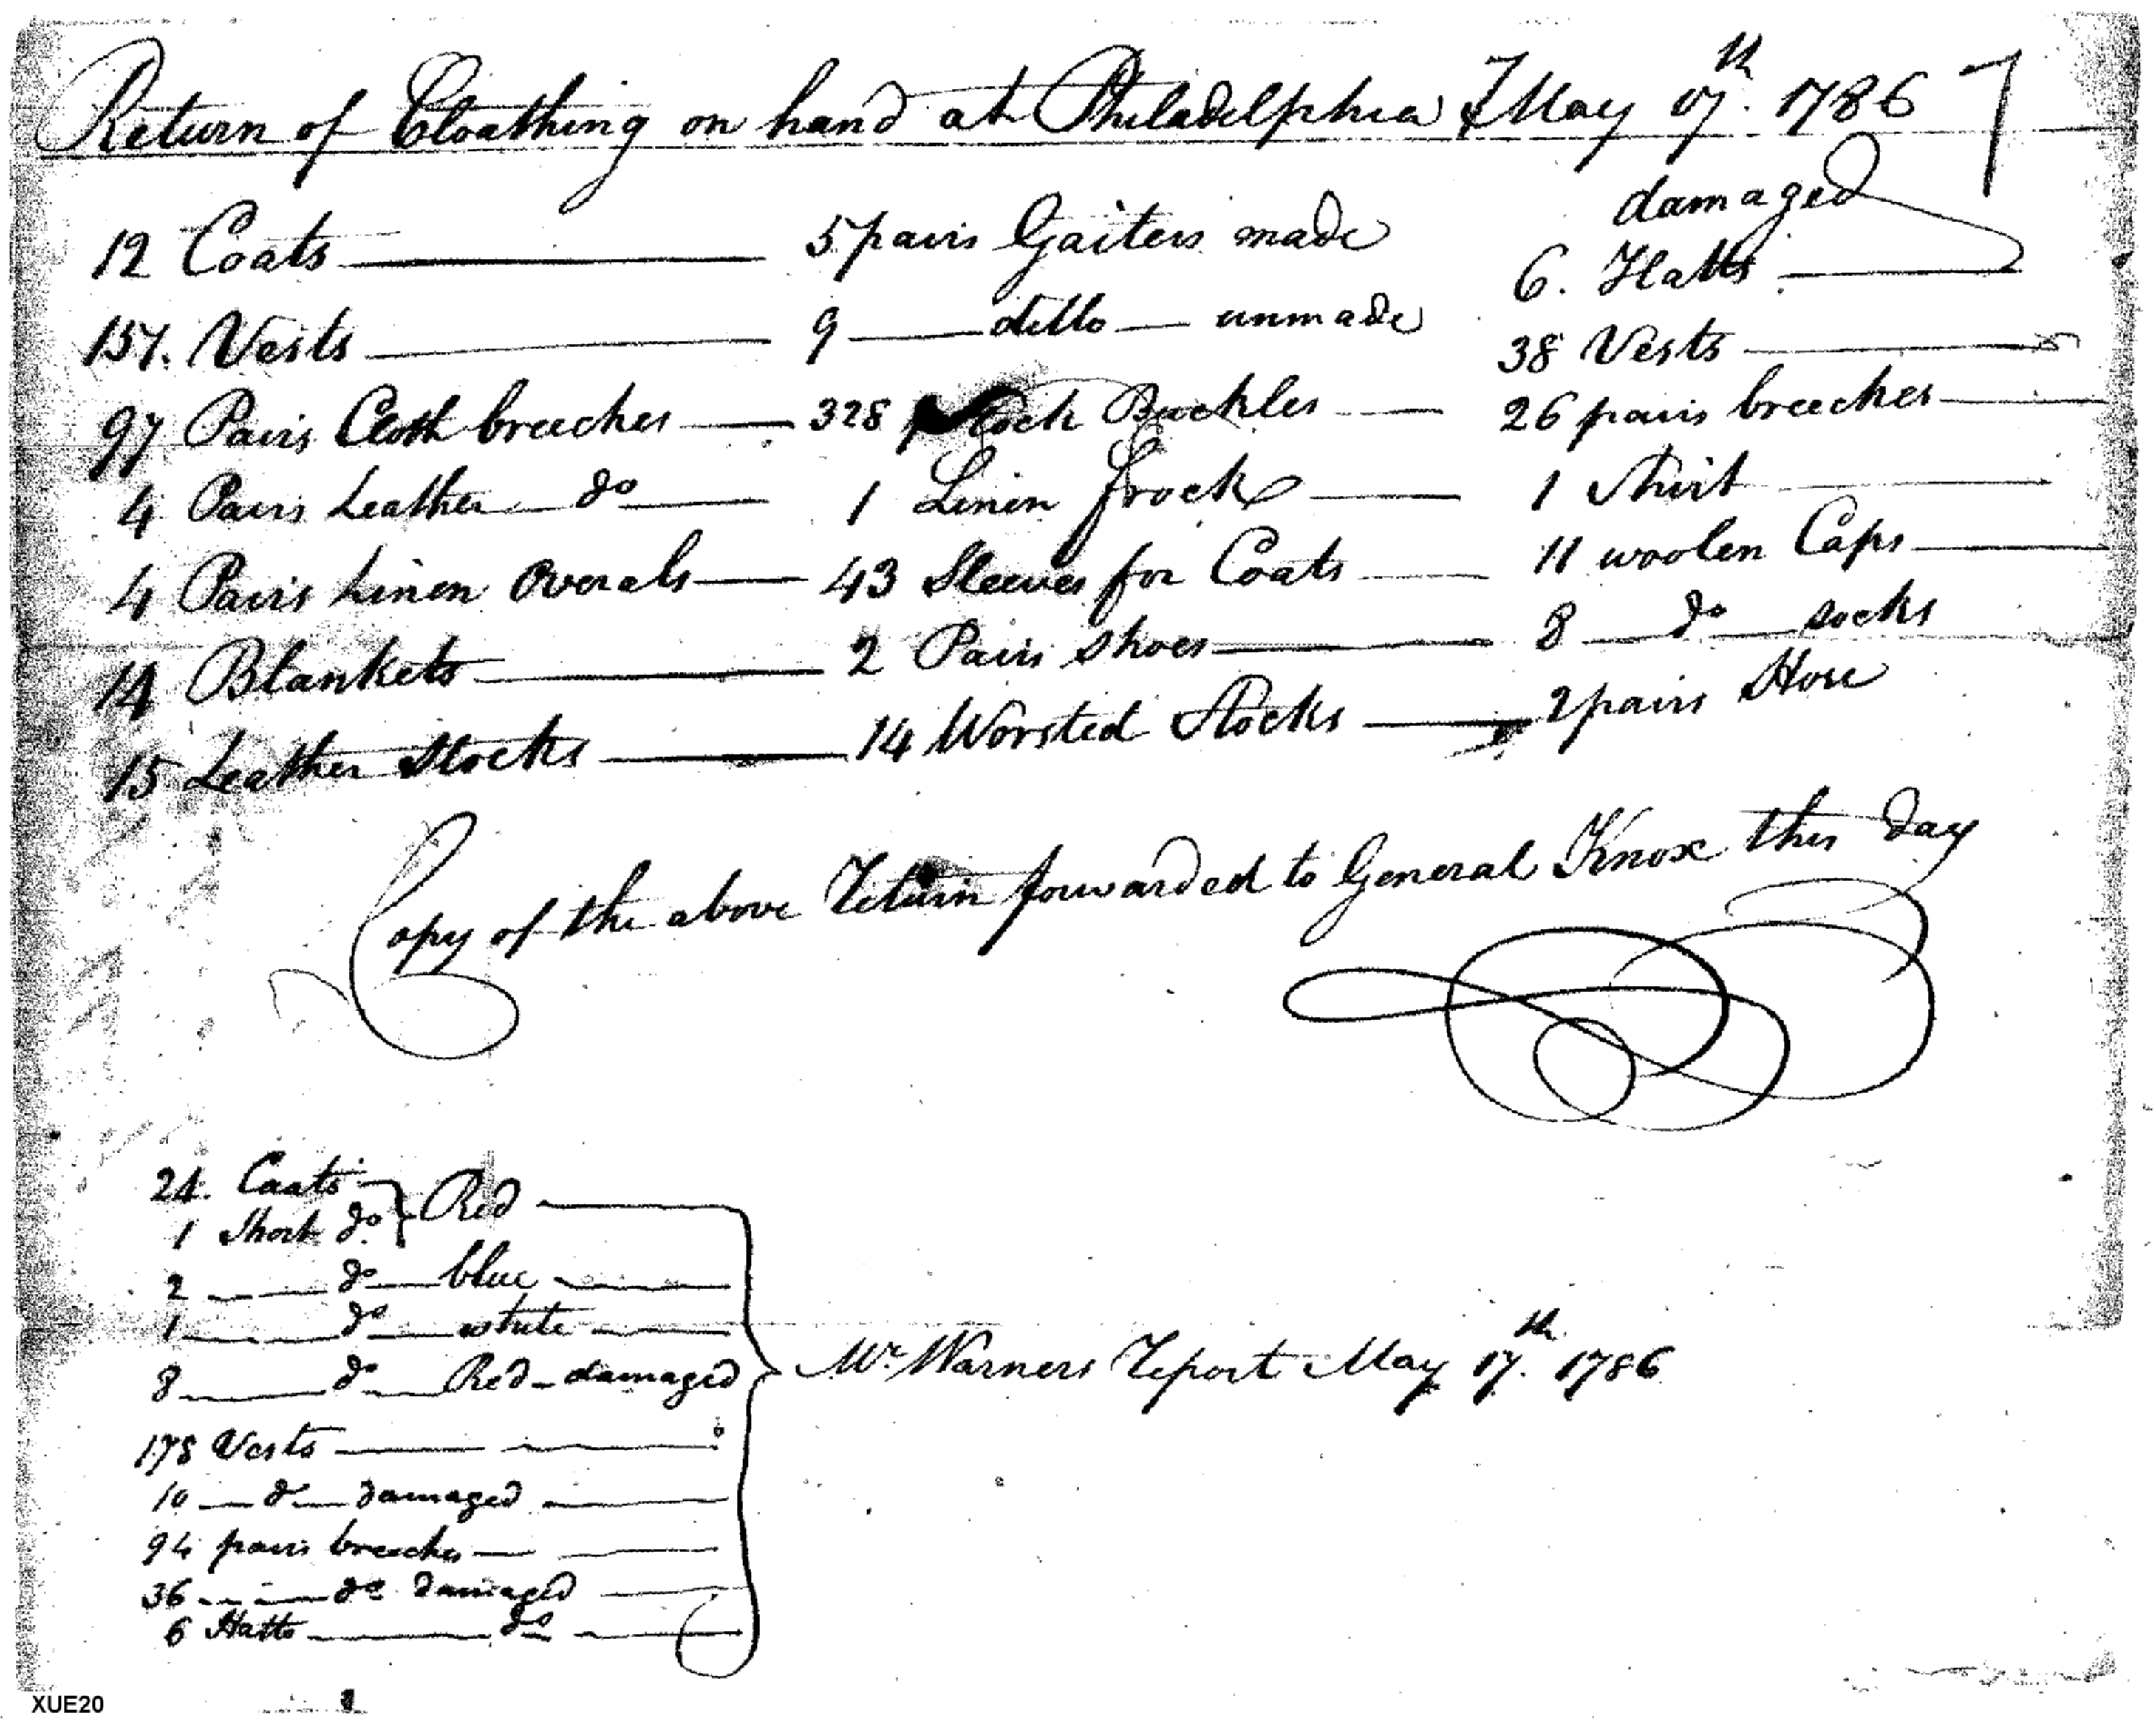 Return of Cloathing on hand at Philadelphia May 17th. 1786
7
12 Coats
157. Vests
97 Pairs Cloth breeches
4 Pairs Leather do
4 Pairs Linen Overals
14 Blankets
15 Leather Stocks
5 pairs Gaiters made
9 ditto unmade
328 Stock Buckles
1 Linen frock
43 Sleeves for Coats
2 Pairs Shoes
14 Worsted Stocks
damaged
6. Hatts
38 Vests
26 pairs breeches
1 Shirt
11 woolen Caps
8 do socks
2 pairs Hose
Copy of the above Return forwarded to General Knox this day
24. Coats } Red
1 Short do. }
2 do blue
1 do white
8 do Red damaged
178 Vests
10 do damaged
94 pairs breeches
36 do damaged
6 Hatts do
Mr. Warners Report May 17th. 1786
XUE20